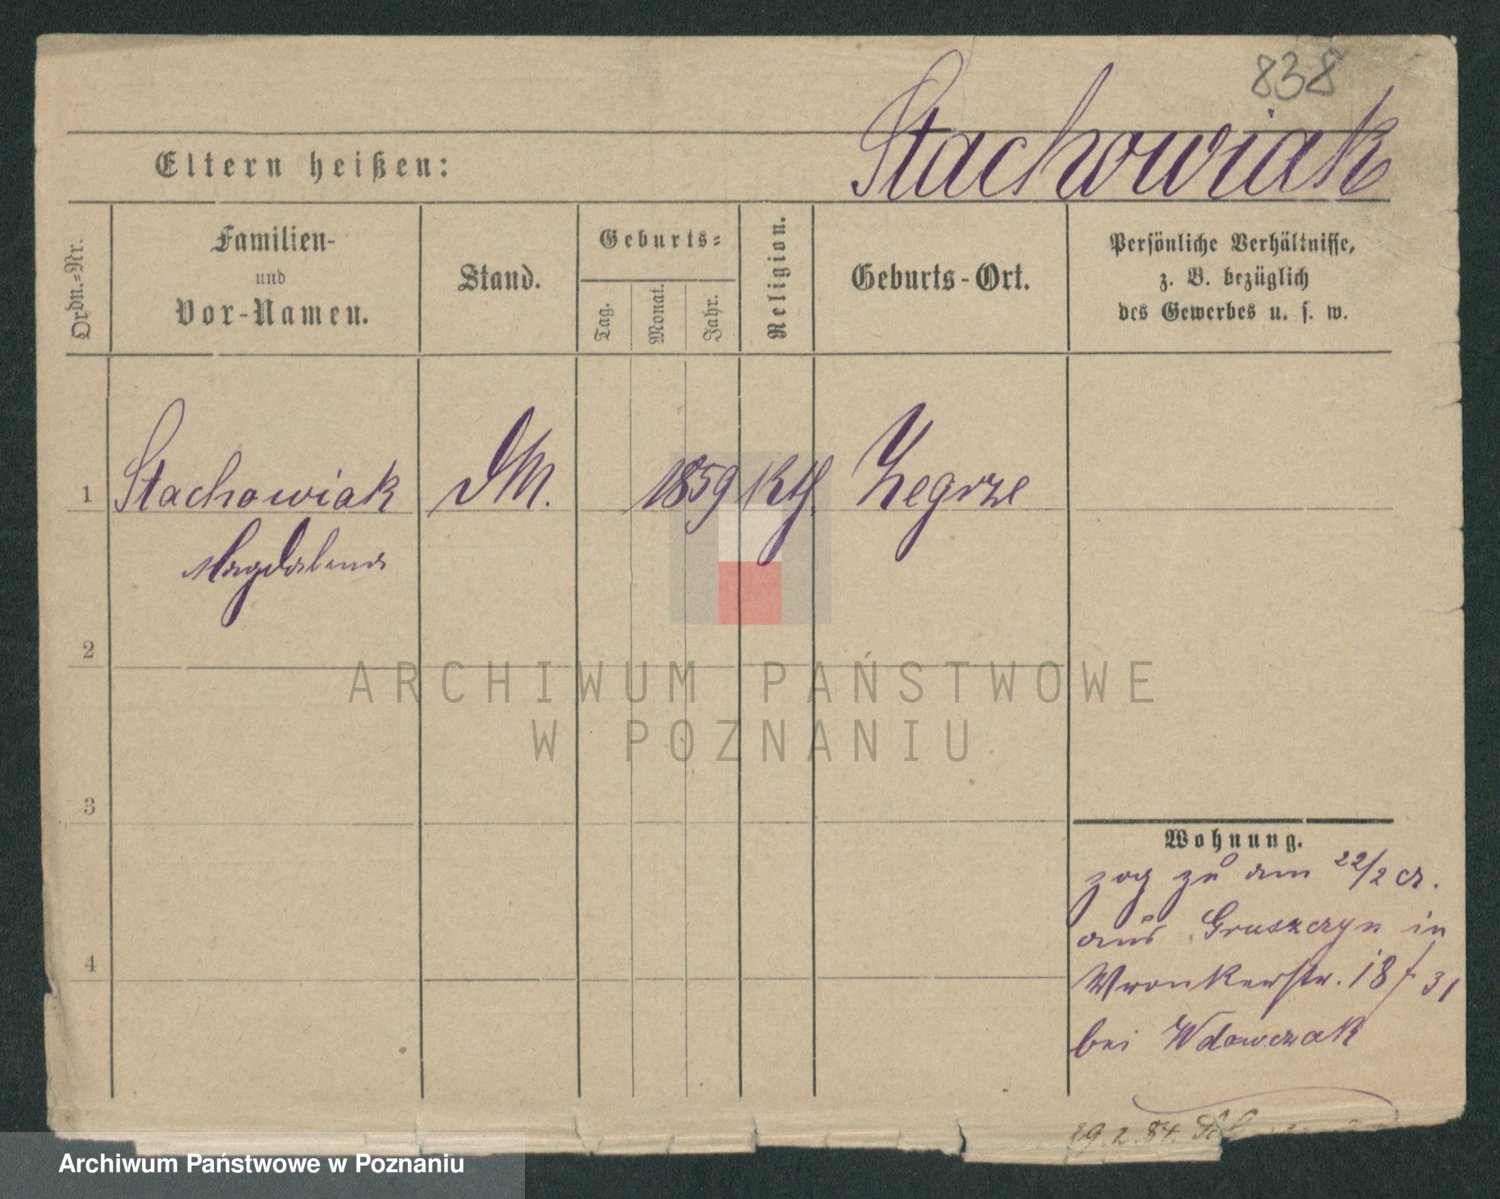 838
Stachowiak
Eltern heißen:
Ordn.-Nr.
Familien-
und
Vor-Namen.
Stand.
Geburts-
Tag.
Monat.
Jahr.
Religion.
Geburts-Ort.
Persönliche Verhältnisse,
z. B. bezüglich
des Gewerbes u. s. w.
1 Stachowiak DM. 1859 Kth. Zegrze
Magdalena
2
3
4
Wohnung.
zog zu am 22/2 cr.
aus Gruszczyn in
Wronkerstr. 18 / 31
bei Wdowczak
29.2.84.
ARCHIWUM PAŃSTWOWE
W POZNANIU
Archiwum Państwowe w Poznaniu